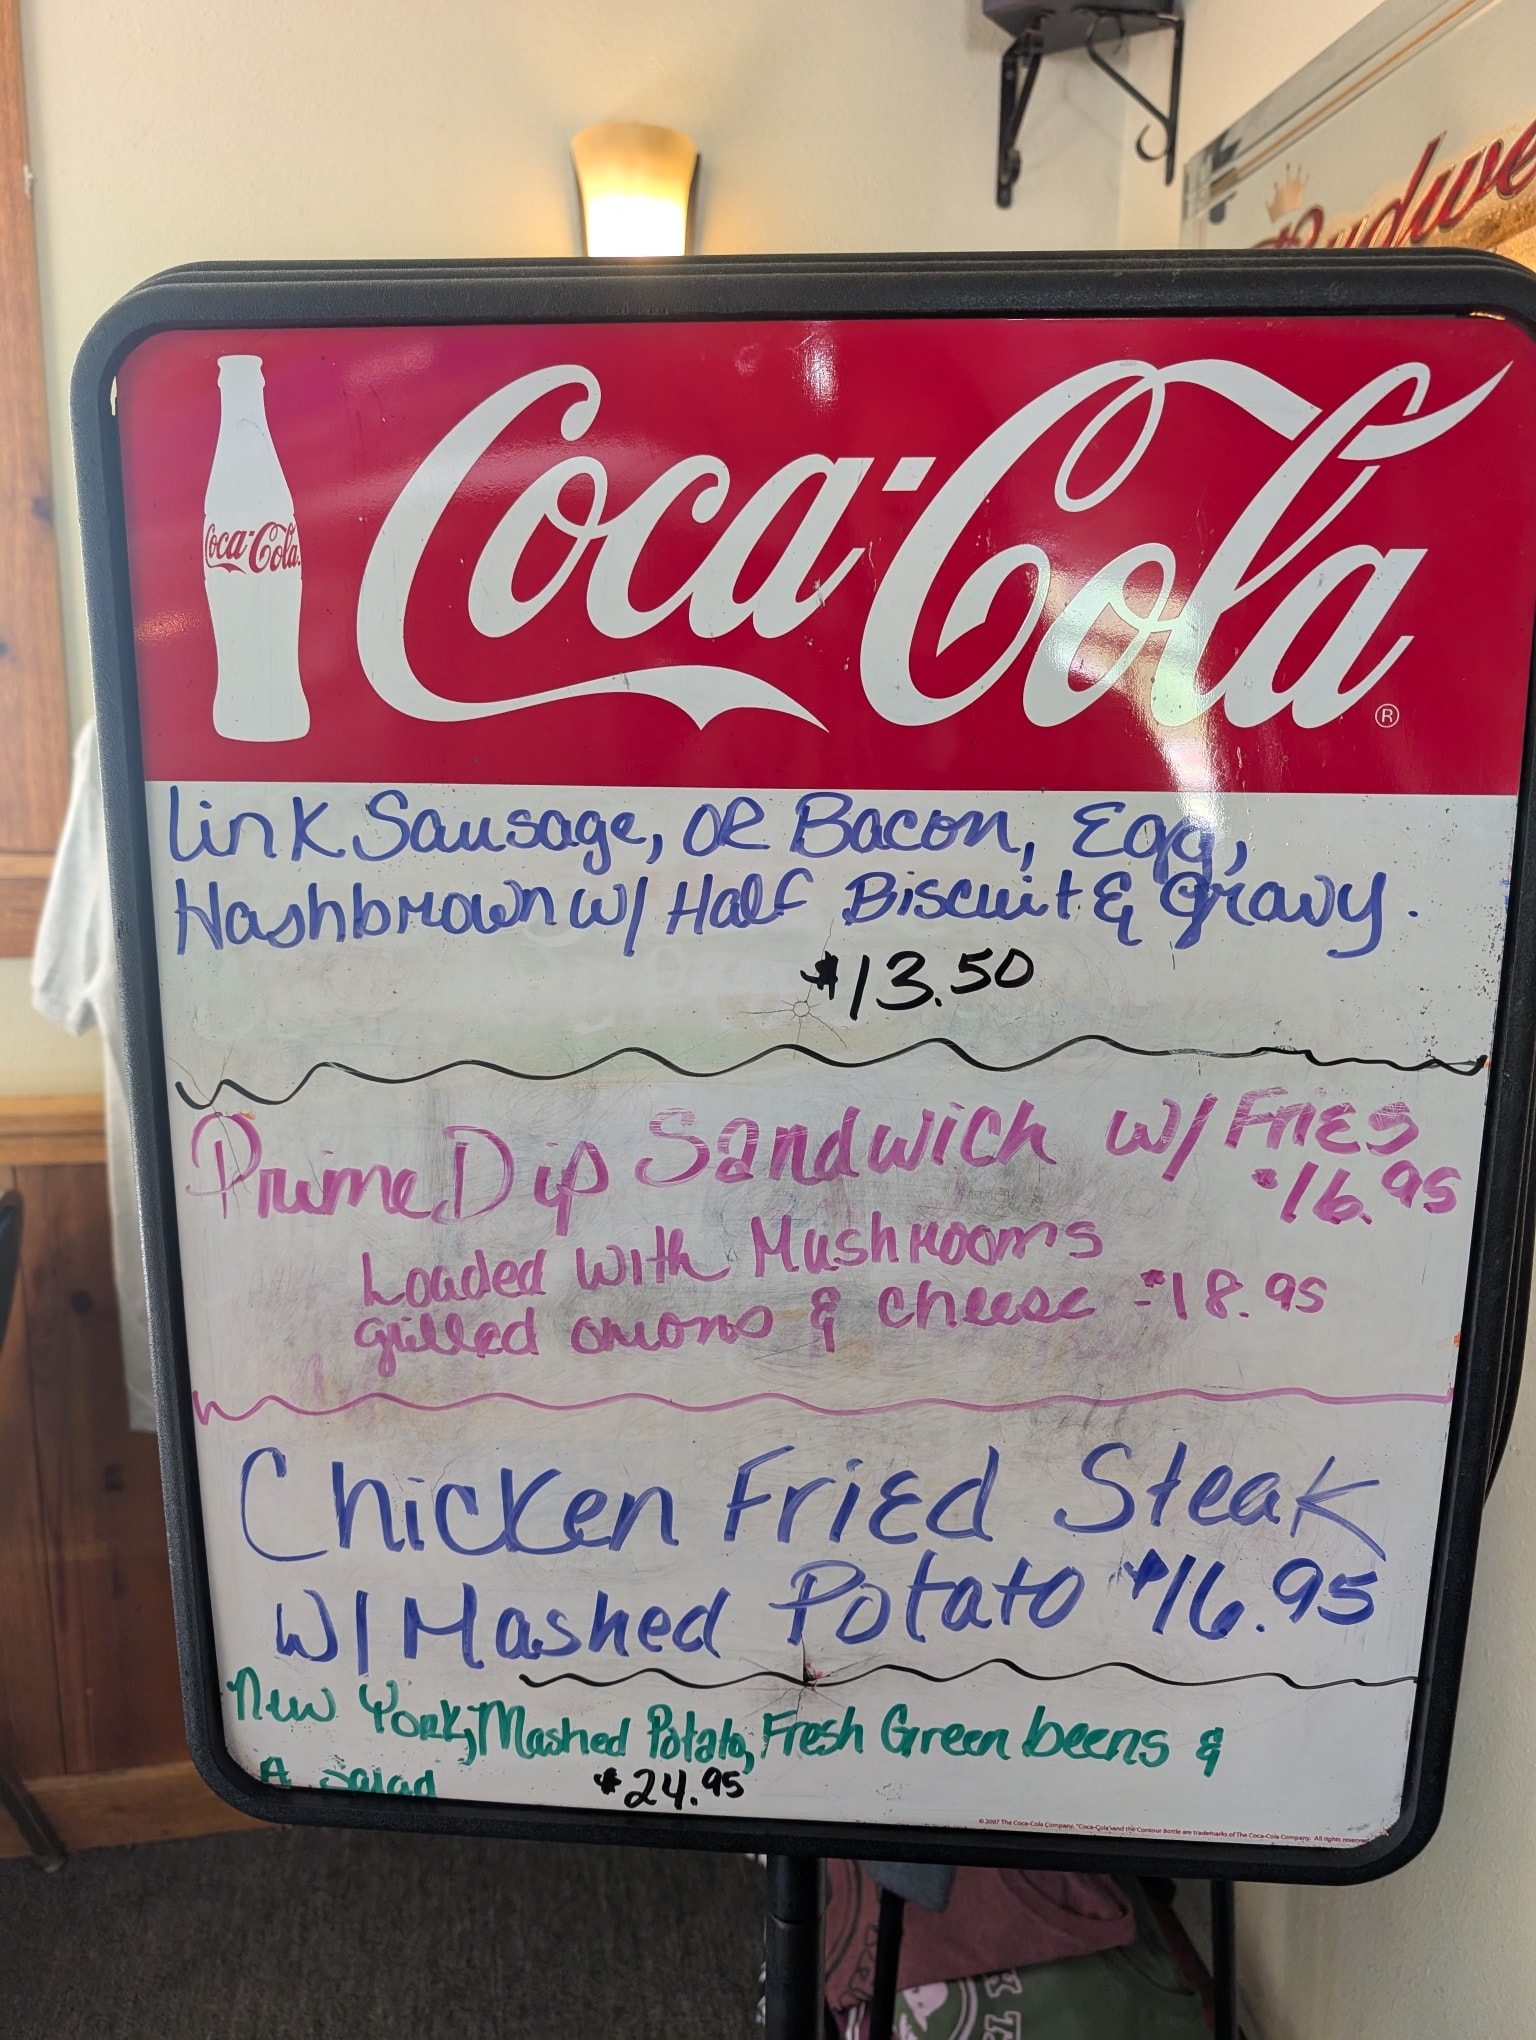 Budwe
Coca-Cola
Coca-Cola ®
Link Sausage, OR Bacon, Egg,
Hashbrown w/ Half Biscuit & Gravy.
$13.50
Prime Dip Sandwich w/ Fries
$16.95
Loaded with Mushrooms
grilled onions & cheese - $18.95
Chicken Fried Steak
w/ Mashed Potato $16.95
New York, Mashed Potato, Fresh Green beens &
A salad $24.95
© 2007 The Coca-Cola Company. "Coca-Cola" and the Contour Bottle are trademarks of The Coca-Cola Company. All rights reserved